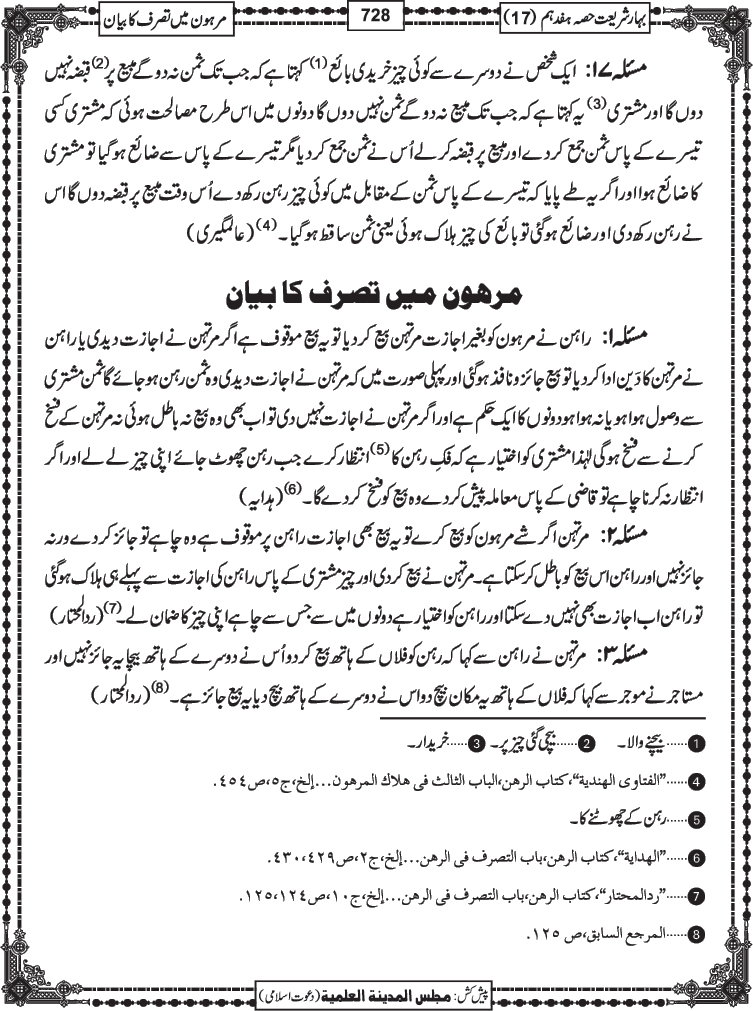 بہارِ شریعت حصہ ہفدہم (17)
728
مرہون میں تصرف کا بیان
مسئلہ ۱۷: ایک شخص نے دوسرے سے کوئی چیز خریدی بائع (1) کہتا ہے کہ جب تک ثمن نہ دو گے مبیع پر (2) قبضہ نہیں
دوں گا اور مشتری (3) یہ کہتا ہے کہ جب تک مبیع نہ دو گے ثمن نہیں دوں گا دونوں میں اس طرح مصالحت ہوئی کہ مشتری کسی
تیسرے کے پاس ثمن جمع کر دے اور مبیع پر قبضہ کر لے اُس نے ثمن جمع کر دیا مگر تیسرے کے پاس سے ضائع ہوگیا تو مشتری
کا ضائع ہوا اور اگر یہ طے پایا کہ تیسرے کے پاس ثمن کے مقابل میں کوئی چیز رہن رکھ دے اُس وقت مبیع پر قبضہ دوں گا اس
نے رہن رکھ دی اور ضائع ہوگئی تو بائع کی چیز ہلاک ہوئی یعنی ثمن ساقط ہوگیا۔ (4) (عالمگیری)
مرہون میں تصرف کا بیان
مسئلہ ۱: راہن نے مرہون کو بغیر اجازت مرتہن بیع کر دیا تو یہ بیع موقوف ہے اگر مرتہن نے اجازت دیدی یا راہن
نے مرتہن کا دَین ادا کر دیا تو بیع جائز و نافذ ہوگئی اور پہلی صورت میں کہ مرتہن نے اجازت دیدی وہ ثمن رہن ہو جائے گا ثمن مشتری
سے وصول ہوا ہو یا نہ ہوا ہو دونوں کا ایک حکم ہے اور اگر مرتہن نے اجازت نہیں دی تو اب بھی وہ بیع نہ باطل ہوئی نہ مرتہن کے فسخ
کرنے سے فسخ ہوگی لہٰذا مشتری کو اختیار ہے کہ فکِ رہن کا (5) انتظار کرے جب رہن چھوٹ جائے اپنی چیز لے لے اور اگر
انتظار نہ کرنا چاہے تو قاضی کے پاس معاملہ پیش کر دے وہ بیع کو فسخ کر دے گا۔ (6) (ہدایہ)
مسئلہ ۲: مرتہن اگر شے مرہون کو بیع کرے تو یہ بیع بھی اجازت راہن پر موقوف ہے وہ چاہے تو جائز کر دے ورنہ
جائز نہیں اور راہن اس بیع کو باطل کرسکتا ہے۔ مرتہن نے بیع کر دی اور چیز مشتری کے پاس راہن کی اجازت سے پہلے ہی ہلاک ہوگئی
تو راہن اب اجازت بھی نہیں دے سکتا اور راہن کو اختیار ہے دونوں میں سے جس سے چاہے اپنی چیز کا ضمان لے۔ (7) (ردالمحتار)
مسئلہ ۳: مرتہن نے راہن سے کہا کہ رہن کو فلاں کے ہاتھ بیع کر دو اُس نے دوسرے کے ہاتھ بیچا یہ جائز نہیں اور
مستاجر نے موجر سے کہا کہ فلاں کے ہاتھ یہ مکان بیچ دو اس نے دوسرے کے ہاتھ بیچ دیا یہ بیع جائز ہے۔ (8) (ردالمحتار)
1 ...... بیچنے والا۔ 2 ...... بیچی گئی چیز پر۔ 3 ...... خریدار۔
4 ...... "الفتاوی الهندیة"، کتاب الرهن، الباب الثالث فی هلاك المرهون...إلخ، ج٥، ص٤٥٤.
5 ...... رہن کے چھوٹنے کا۔
6 ...... "الهدایة"، کتاب الرهن، باب التصرف فی الرهن...إلخ، ج٢، ص٤٢٩، ٤٣٠.
7 ...... "ردالمحتار"، کتاب الرهن، باب التصرف فی الرهن...إلخ، ج١٠، ص١٢٤، ١٢٥.
8 ...... المرجع السابق، ص ١٢٥.
پیش کش: مجلس المدينة العلمية (دعوت اسلامی)